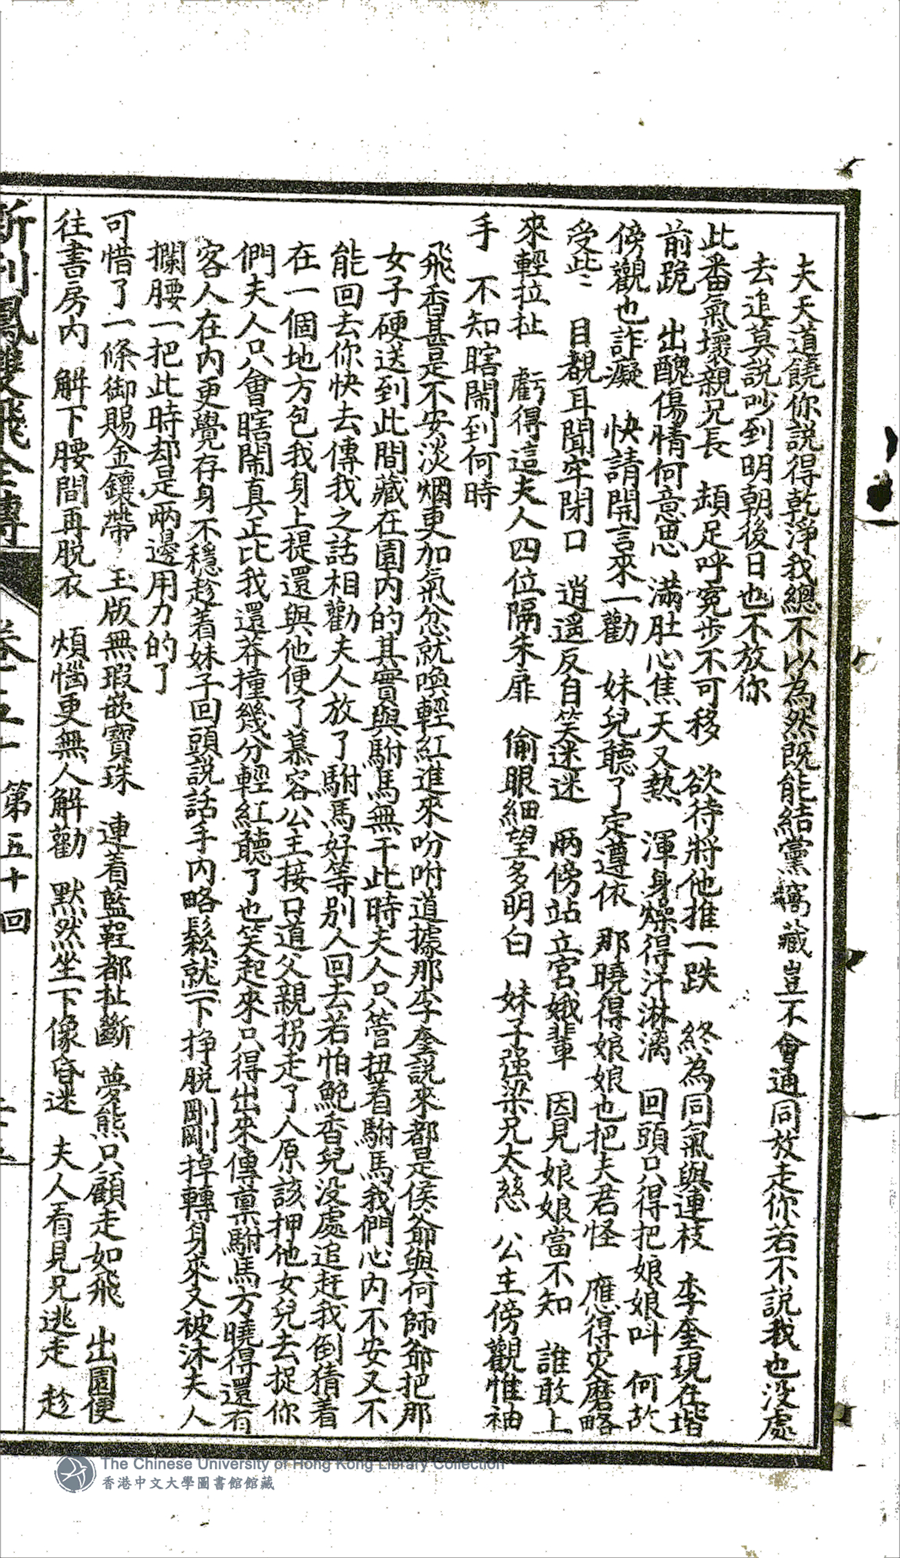 夫天道饒你說得乾淨我總不以為然既能結黨窩藏豈不會通同放走你若不說我也沒處
去追莫說吵到明朝後日也不放你
此番氣壞親兄長 頓足呼冤步不可移 欲待將他推一跌 終為同氣與連枝 李奎現在堦
前跪 出醜傷情何意思 滿肚心焦天又熱 渾身燥得汗淋漓 回頭只得把娘娘叫 何故
傍觀也詐癡 快請開言來一勸 妹兒聽了定遵依 那曉得娘娘也把夫君怪 應得災磨略
受些 目覩耳聞牢閉口 逍遥反自笑迷迷 兩傍站立宮娥輩 因見娘娘當不知 誰敢上
來輕拉扯 虧得這夫人四位隔朱扉 偷眼細望多明白 妹子强梁兄太慈 公主傍觀惟袖
手 不知瞎鬧到何時
飛香甚是不安淡烟更加氣忿就喚輕紅進來吩咐道據那李奎說來都是侯爺與何師爺把那
女子硬送到此間藏在園內的其實與駙馬無干此時夫人只管扭着駙馬我們心內不安又不
能回去你快去傳我之話相勸夫人放了駙馬好等別人回去若怕鮑香兒没處追赶我倒猜着
在一個地方包我身上提還與他便了慕容公主接口道父親拐走了人原該押他女兒去捉你
們夫人只會瞎鬧真正比我還莽撞幾分輕紅聽了也笑起來只得出來傳稟駙馬方曉得還有
客人在內更覺存身不穩趁着妹子回頭說話手內略鬆就一下掙脱剛剛掉轉身來又被沐夫人
攔腰一把此時却是兩邊用力的了
可惜了一條御賜金鑲帶 玉版無瑕嵌寶珠 連着藍鞓都扯斷 夢熊只顧走如飛 出園便
往書房內 解下腰間再脱衣 煩惱更無人解勸 默然坐下像昏迷 夫人看見兄逃走 趁
新刊鳳雙飛全傳 卷五十 第五十回
The Chinese University of Hong Kong Library Collection
香港中文大學圖書館館藏